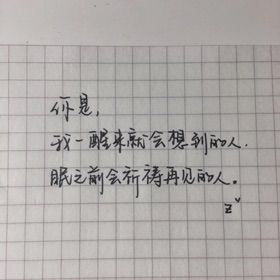 你是,
我一醒来就会想到的人.
眠之前会祈祷再见的人。
z v